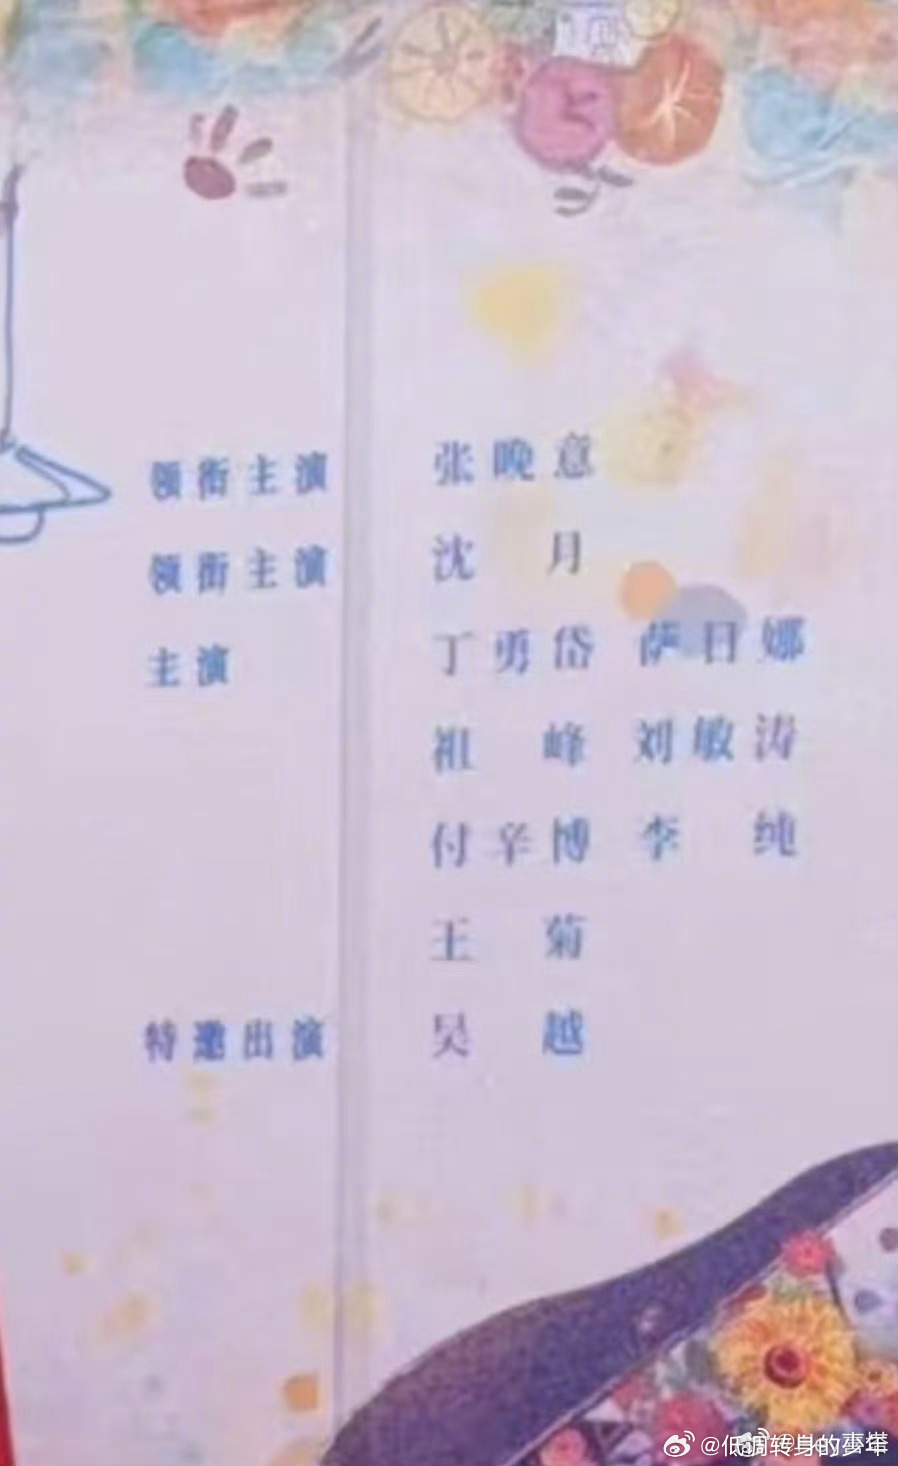 领衔主演 张晚意
领衔主演 沈月
主演 丁勇岱 萨日娜
祖峰 刘敏涛
付辛博 李纯
王菊
特邀出演 吴越
@低调转身的少年